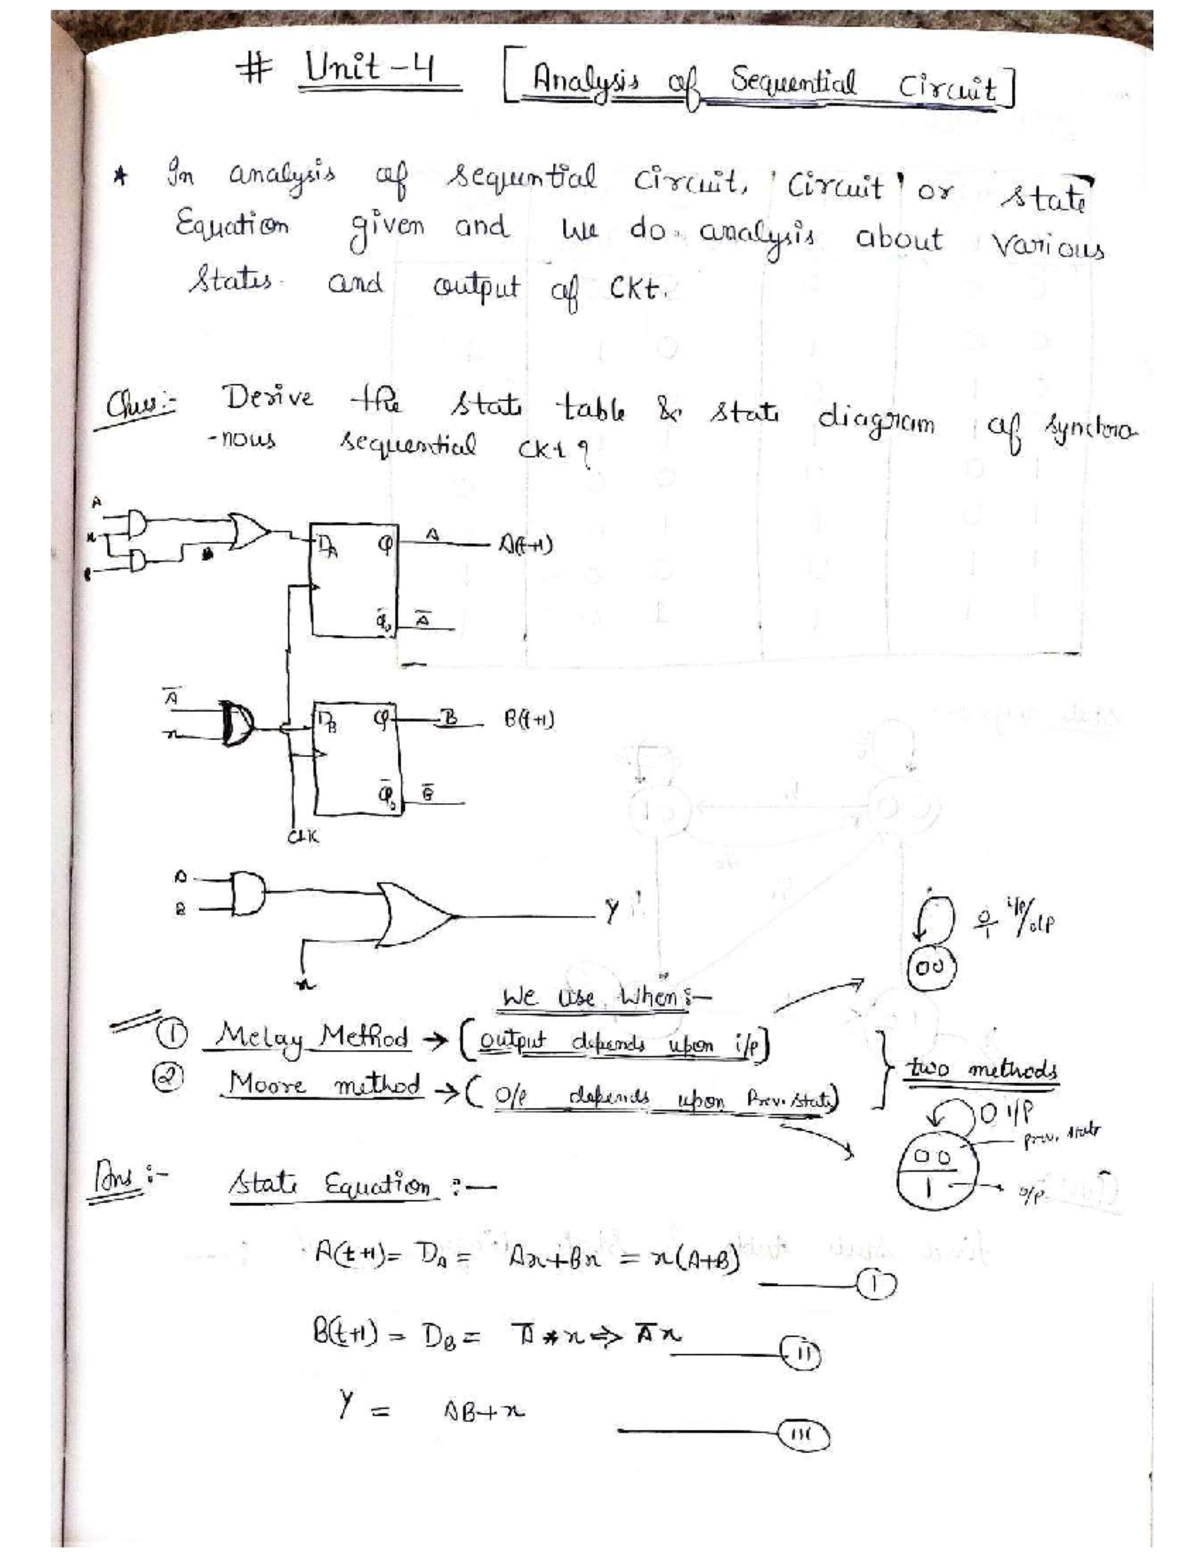 # Unit-4 [Analysis of Sequential Circuit]
* In analysis of sequential circuit, 'Circuit' or state
Equation given and we do analysis about various
States and output of Ckt.
Ques:- Derive the state table & state diagram of synchro
-nous sequential Ckt?
A
x
B
D_A Q A A(t+1)
Q̅ A̅
A̅
x
D_B Q B B(t+1)
Q̅ B̅
CLK
A
B
x
Y
0/1 i/p/o/p
00
We use When:-
① Melay Method → (output depends upon i/p)
② Moore method → (O/p depends upon Prev. state)
} two methods
0 i/p
00 prev. state
1 → o/p
Ans:- State Equation :-
A(t+1) = D_A = Ax+Bx = x(A+B) —— I
B(t+1) = D_B = A̅ * x ⇒ A̅x —— II
Y = AB+x —— III